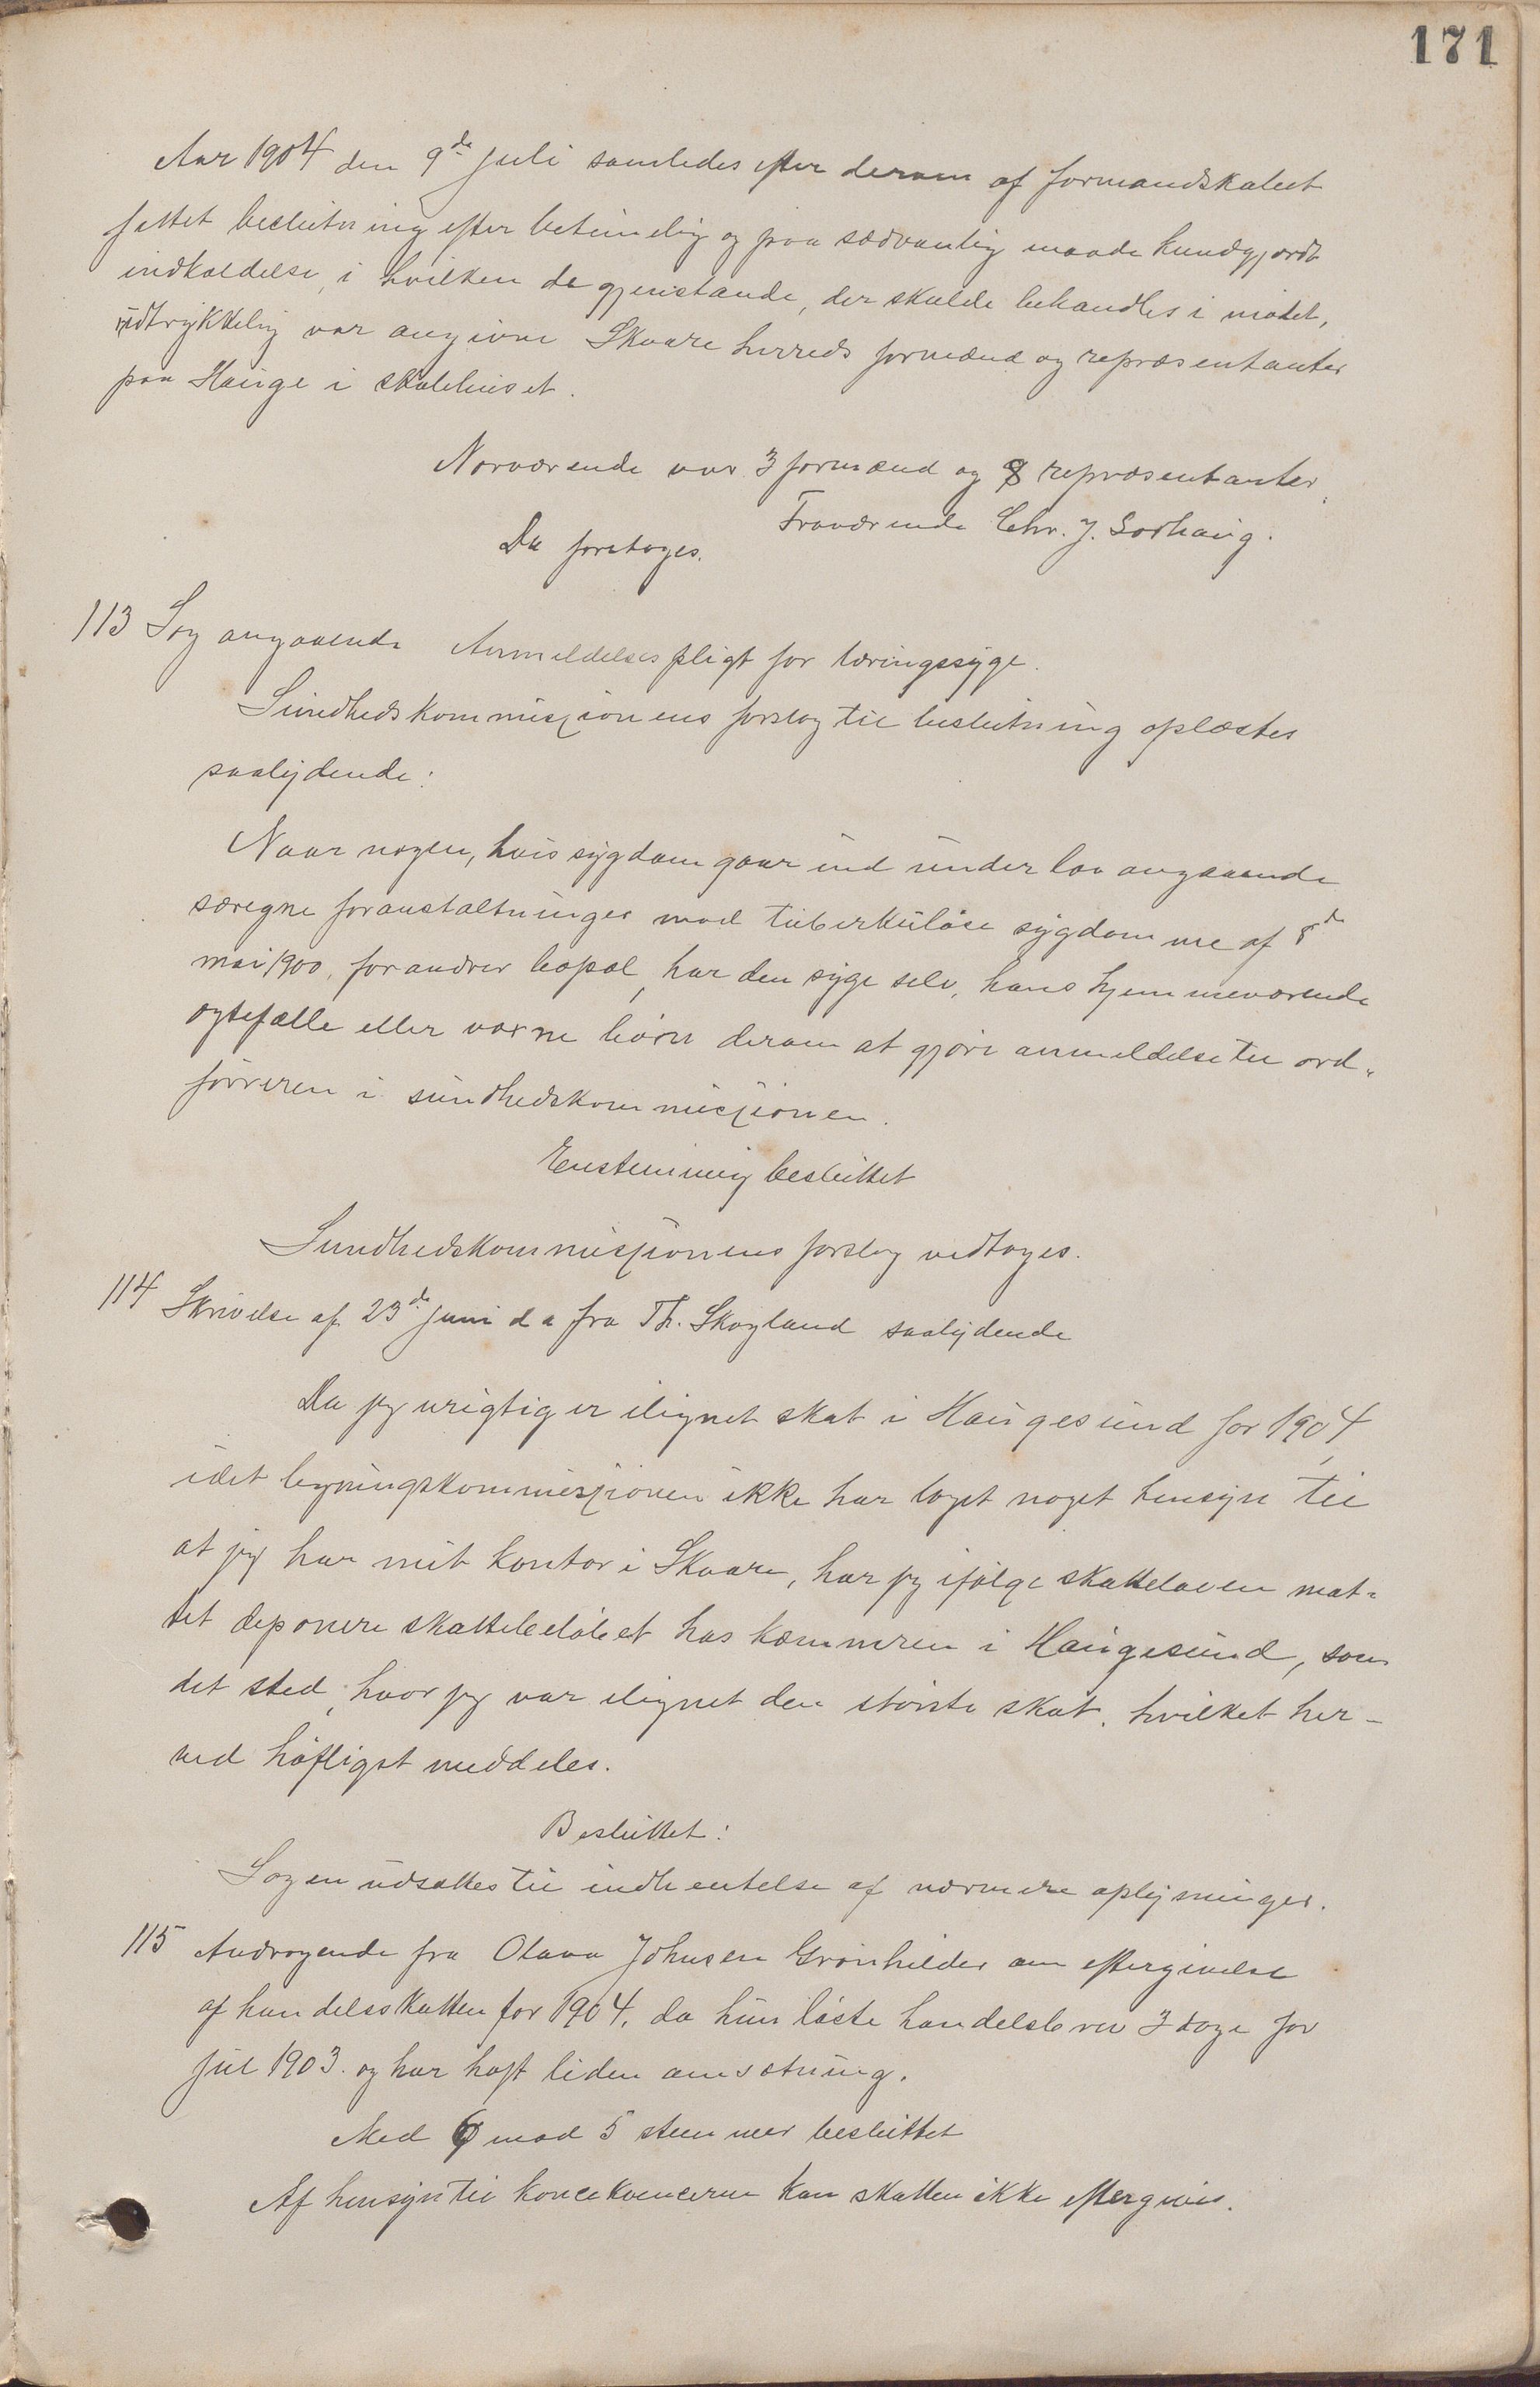 171
Aar 1904 den 9de juli samledes efter derom af formandskabet
fattet beslutning efter betimelig og paa sædvanlig maade kundgjordt
indkaldelse, i hvilken de gjenstande, der skulde behandles i mødet,
udtrykkelig var angivne Skaare herreds formænd og repræsentanter
paa Hauge i skolehuset.
Nærværende var 3 formænd og 8 repræsentanter.
Fraværende Chr. J. Sørhaug.
Da foretoges.
113 Sag angaaende Anmeldelsespligt for tæringssyge.
Sundhedskommissionens forslag til beslutning oplæstes
saalydende:
Naar nogen, hvis sygdom gaar ind under lov angaaende
særegne foranstaltninger mod tuberkuløse sygdomme af 8de
mai 1900, forandrer bopæl, har den syge selv, hans hjemmeværende
ægtefælle eller voxne børn derom at gjøre anmeldelse til ord-
føreren i sundhedskommissionen.
Enstemmig besluttet
Sundhedskommissionens forslag vedtoges.
114 Skrivelse af 23de juni d a fra Th. Skogland saalydende
Da jeg urigtig er ilignet skat i Haugesund for 1904,
idet ligningskommissionen ikke har taget noget hensyn til
at jeg har mit kontor i Skaare, har jeg ifølge skatteloven maat-
tet deponere skattebeløbet hos kæmneren i Haugesund, som
det sted, hvor jeg var ilignet den største skat, hvilket her-
ved høfligst meddeles.
Besluttet:
Sagen udsættes til indhentelse af nærmere oplysninger.
115 Andragende fra Olava Johnsen Grønhilder om eftergivelse
af handelsskatten for 1904, da hun løste handelsbrev 3 dage før
jul 1903 og har havt liden omsætning.
Med 6 mod 5 stemmer besluttet
Af hensyn til koncekvencerne kan skatten ikke eftergives.